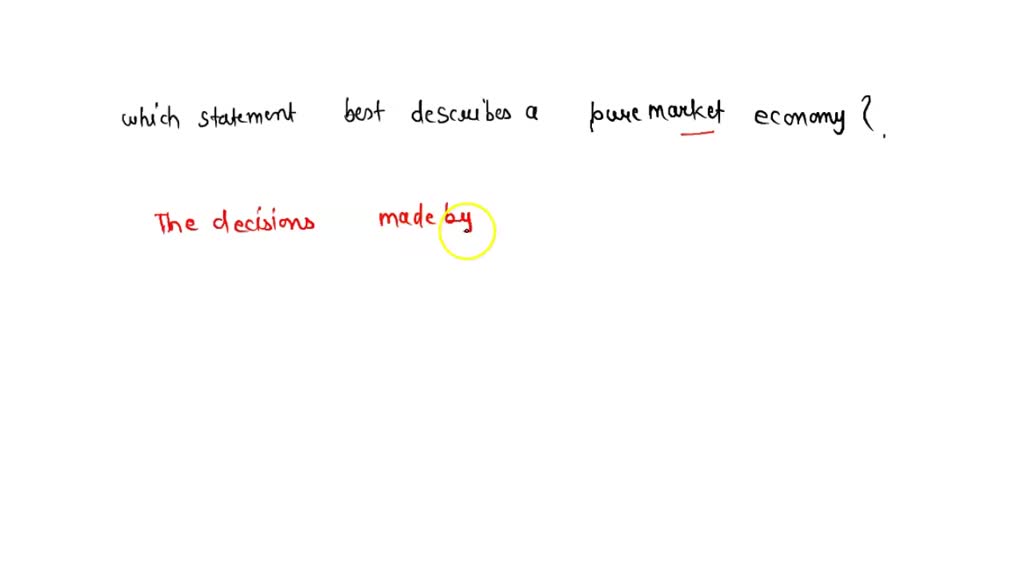 which statement best describes a pure market economy?
The decisions made by